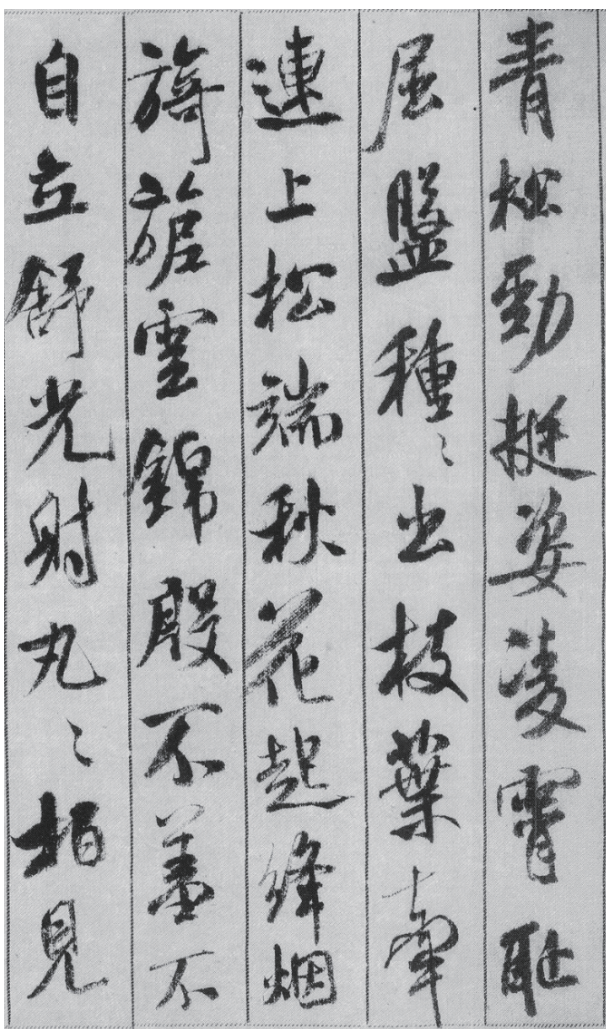 青松勁挺姿凌霄恥
屈盤種〻出枝葉牽
連上松端秋花起絳烟
旖旎雲錦殷不羞不
自立舒光射丸〻柏見